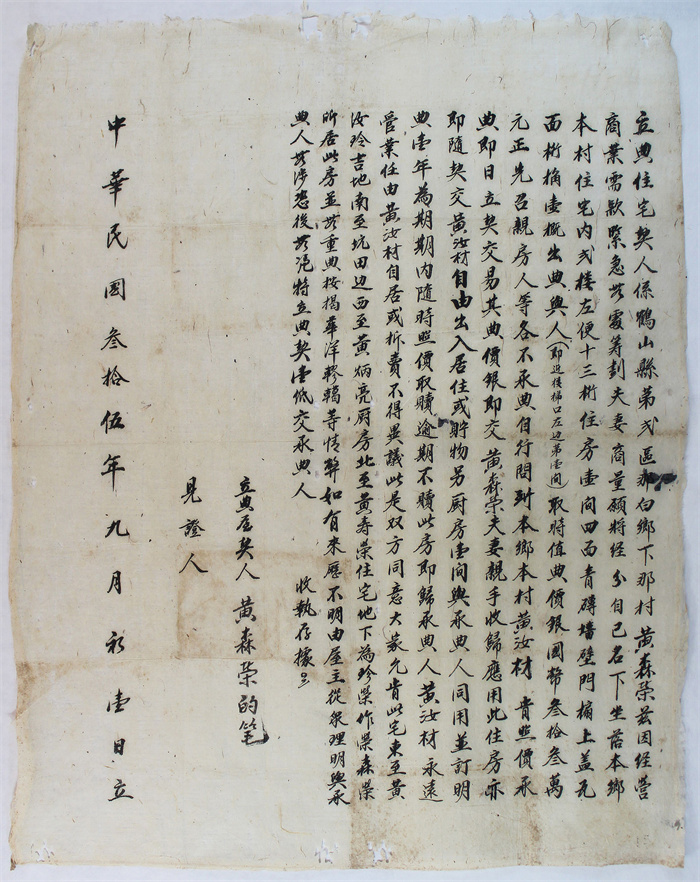 立典住宅契人係鶴山縣第弍區那白鄉下那村黃森榮茲因經營
商業需款緊急無處籌劃夫妻商量願將經分自己名下坐落本鄉
本村住宅內弍樓左便十三桁住房壹间四面青磚墻壁門扇上盖瓦
面桁桷壹概出典與人(即近後梯口左边第壹间)取時值典價銀國幣叁拾叁萬
元正先召親房人等各不承典自行問到本鄉本村黃汝材 肯照價承
典即日立契交易其典價銀即交黃森榮夫妻親手收歸應用此住房亦
即隨契交黃汝材自由出入居住或貯物另厨房壹间與承典人同用並訂明
典壹年為期期內隨時照價取贖逾期不贖此房即歸承典人黃汝材永遠
管業任由黃汝材自居或拆賣不得異議此是双方同意大家允肯此宅東至黃
汝玲吉地南至坑田边西至黃炳亮厨房北至黃壽榮住宅地下為珍榮作榮森榮
所居此房並無重典按揭華洋轇輵等情弊如有來歷不明由屋主從眾理明與承
典人無涉恐後無凴特立典契壹纸交承典人 收執存據
立典屋契人 黃森榮的笔
見證人
中華民國叁拾伍年九月初壹日立